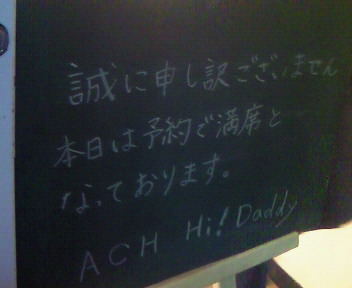 誠に申し訳ございません
本日は予約で満席と
なっております。
ACH Hi! Daddy